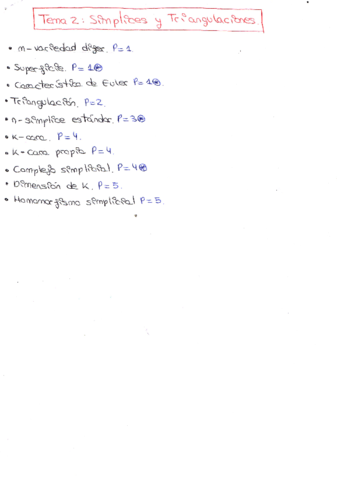 Tema 2: Símplices y Triangulaciones
• n-variedad difer. P=1.
• Superficie. P=1⊛
• Característica de Euler P=1⊛.
• Triangulación, P=2.
• n-símplice estándar. P=3⊛
• K-cara. P=4.
• K-cara propia P=4.
• Complejo simplicial. P=4⊛
• Dimensión de K. P=5.
• Homomorfismo simplicial P=5.